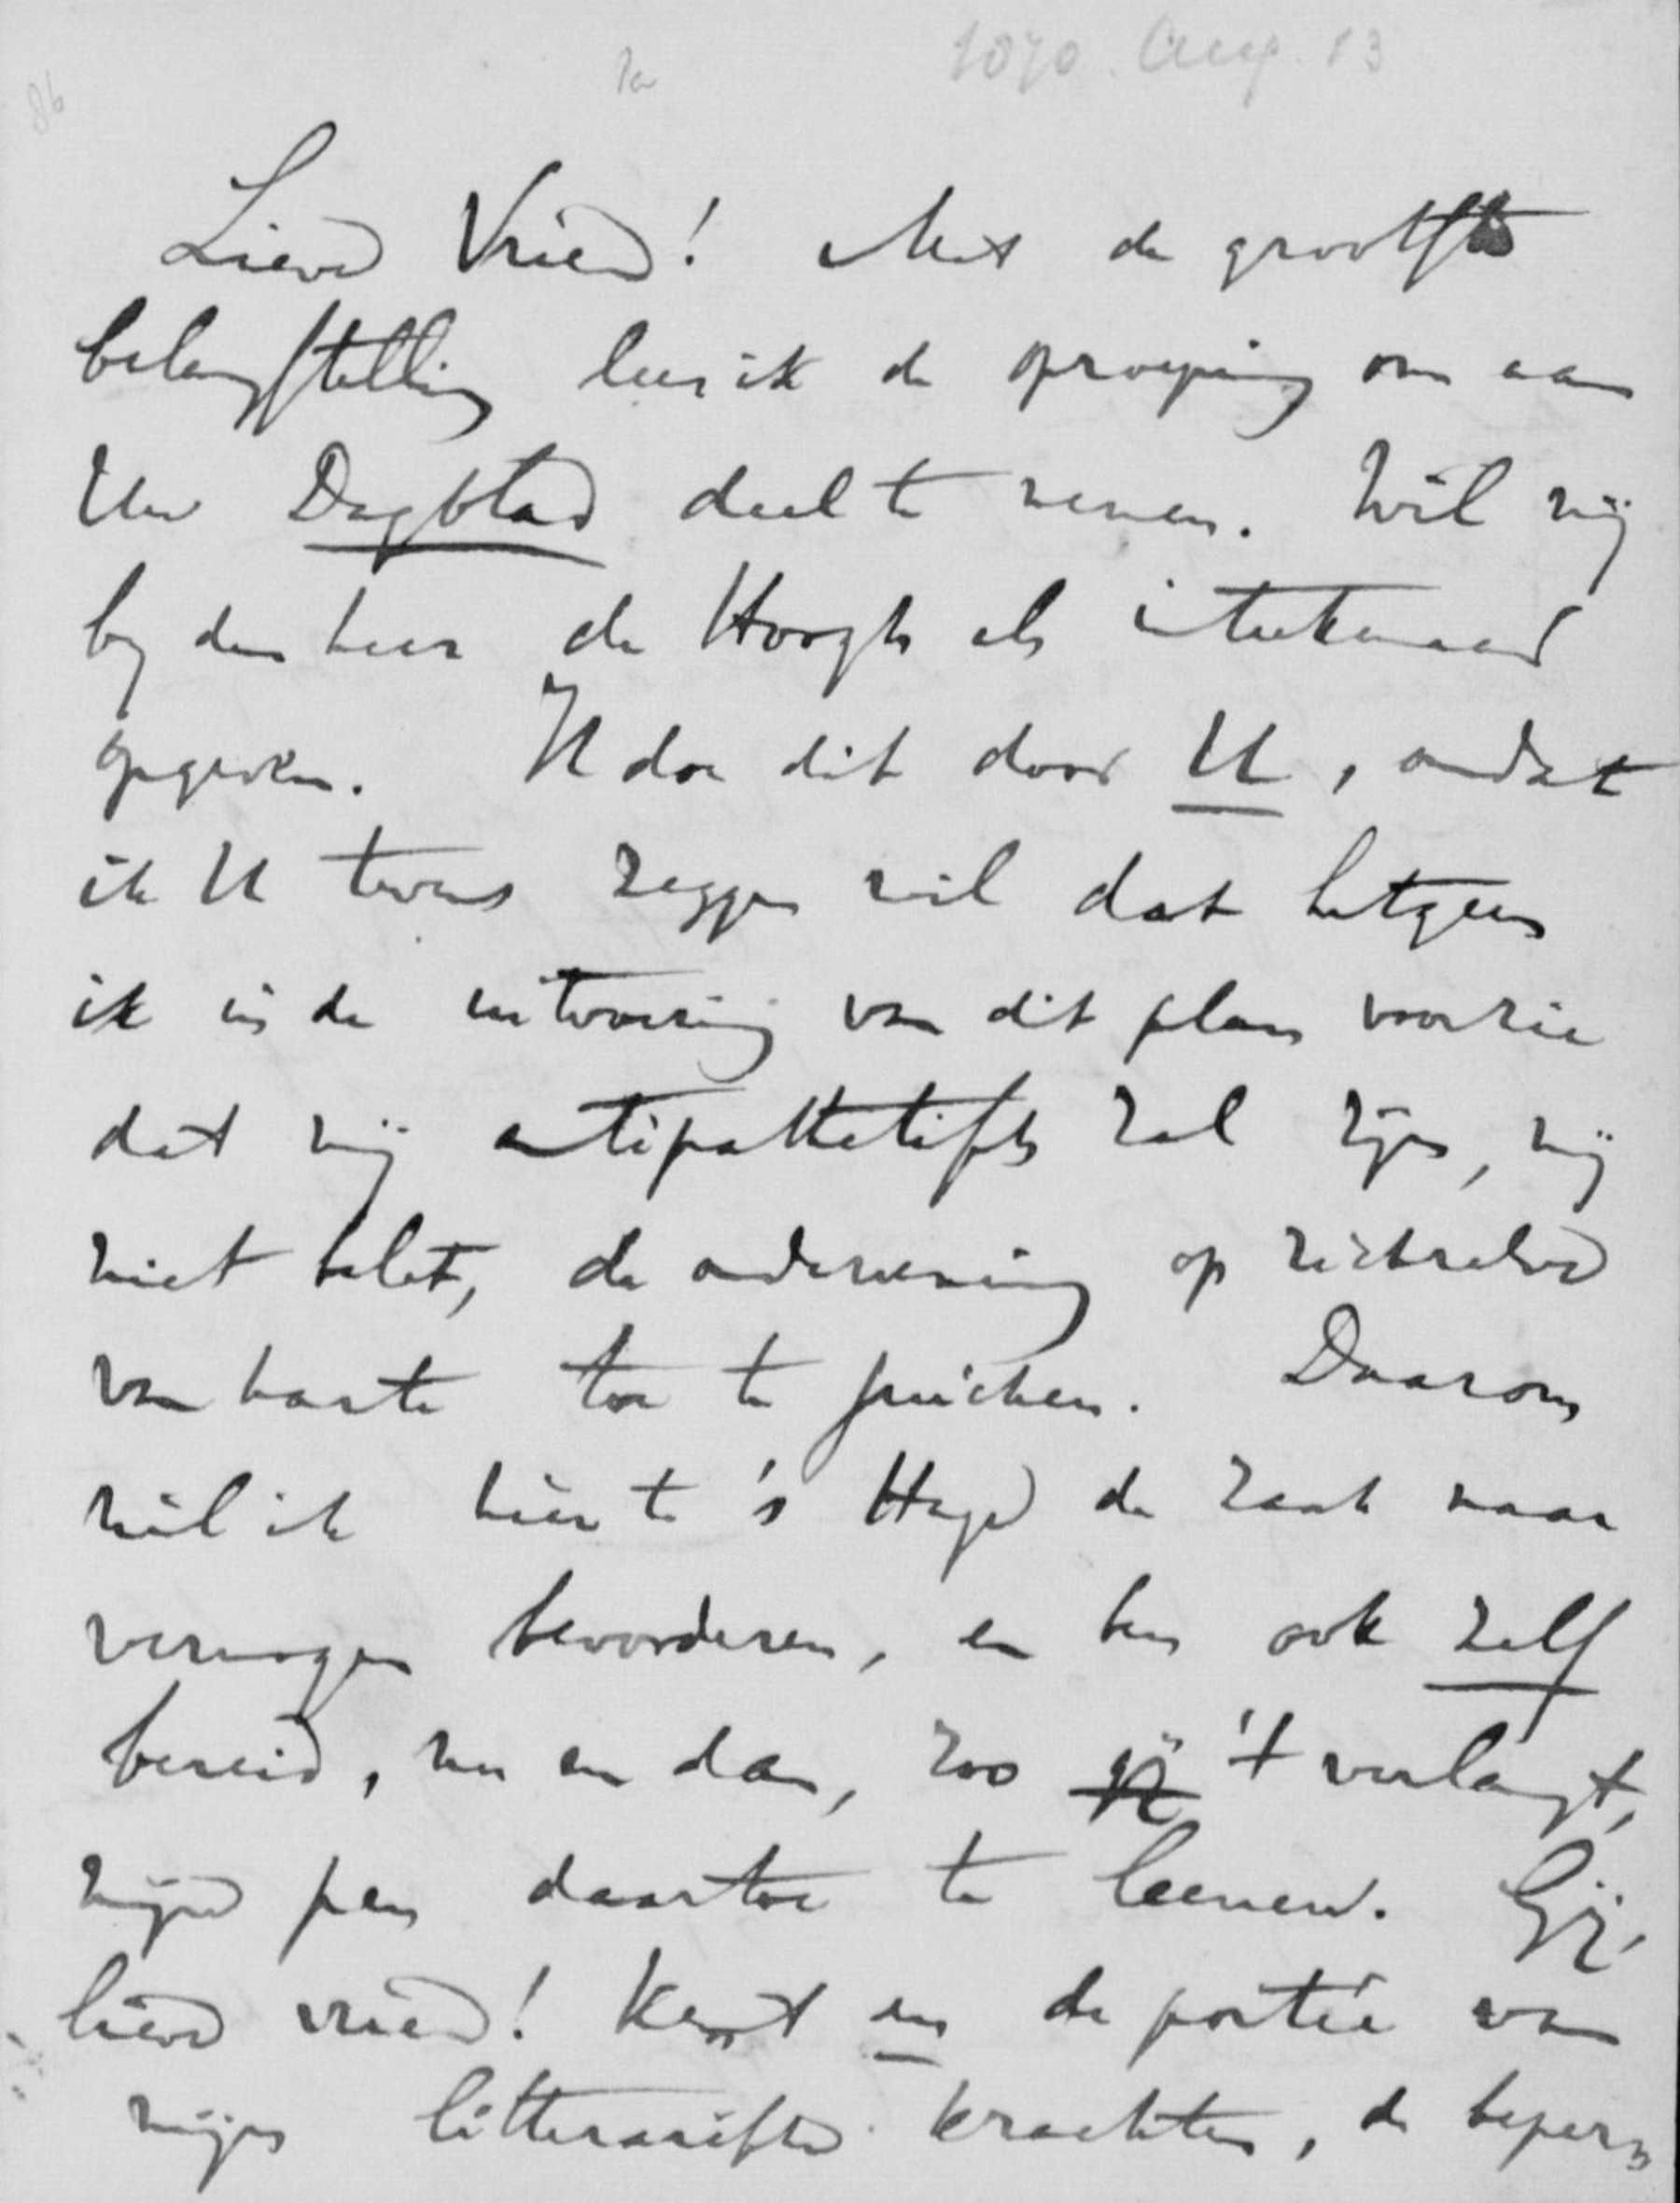 1870. Aug. 13
86
Lieve Vriend! Met de grootste
belangstelling lees ik de oproeping om aan
Uw Dagblad deel te nemen. Wil mij
by den heer de Hoogh als intekenaar
opgeven. Ik doe dit door U, omdat
ik U tevens zeggen wil dat hetgeen
ik in de uitvoering van dit plan voorzie
dat mij antipathetisch zal zijn, mij
niet belet, de onderneming op zichzelve
van harte toe te juichen. Daarom
wil ik hier te 's Hage de zaak naar
vermogen bevorderen, en ben ook zelf
bereid, nu en dan, zoo gij 't verlangt,
mijne pen daartoe te leenen. Gij,
lieve vriend! kent en de portée van
mijne litterarische krachten, de beper=